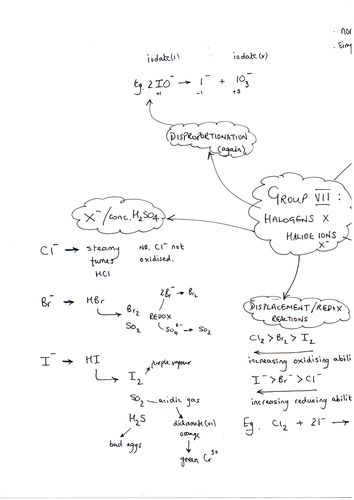 iodate(I) iodate(V)
Eg. 2IO⁻ → I⁻ + IO₃⁻
+1 -1 +5
DISPROPORTIONATION
(again)
GROUP VII :
HALOGENS X
HALIDE IONS
X⁻
X⁻/conc. H₂SO₄
Cl⁻ → steamy fumes HCl
NB. Cl⁻ not oxidised.
Br⁻ → HBr
Br₂
SO₂
REDOX
2Br⁻ → Br₂
SO₄²⁻ → SO₂
I⁻ → HI
I₂
purple vapour
SO₂ — acidic gas
H₂S
bad eggs
dichromate(VI)
orange
green Cr³⁺
DISPLACEMENT/REDOX
REACTIONS
Cl₂ > Br₂ > I₂
increasing oxidising abili
I⁻ > Br⁻ > Cl⁻
increasing reducing abilit
Eg. Cl₂ + 2I⁻ →